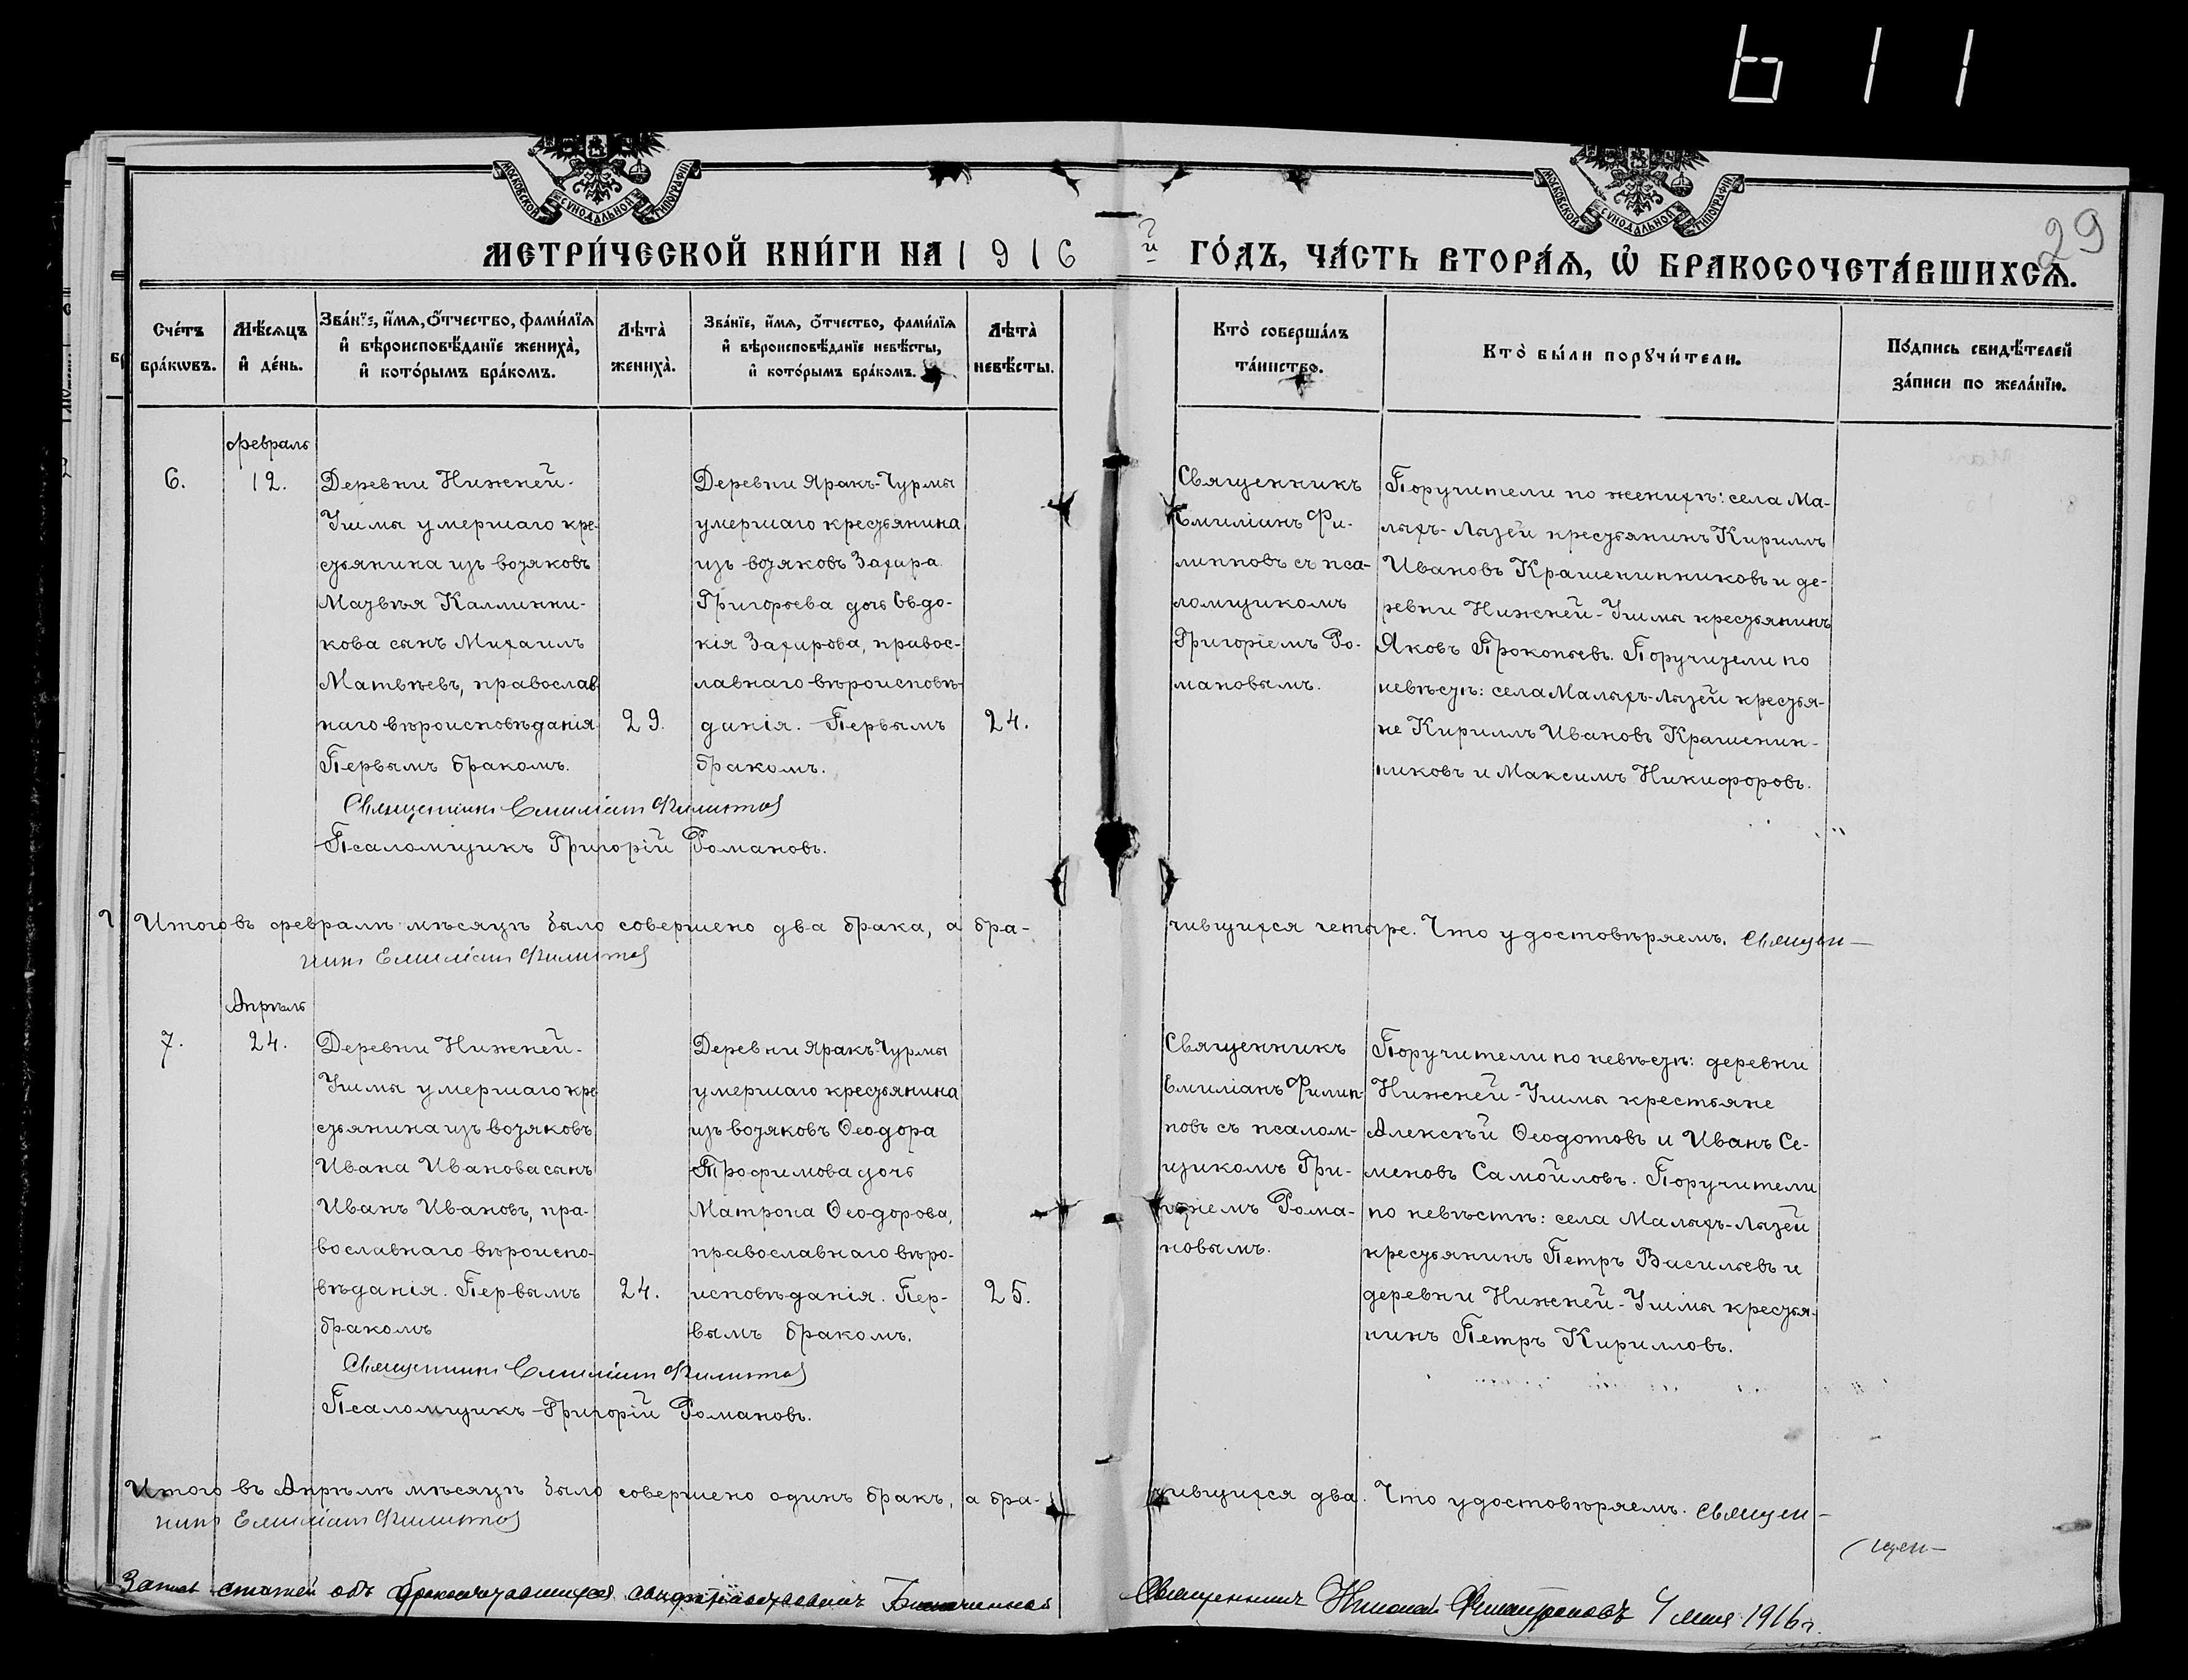 611
МОСКОВСКОЙ СѴНОДАЛЬНОЙ ТИПОГРАФІИ
МОСКОВСКОЙ СѴНОДАЛЬНОЙ ТИПОГРАФІИ
29
МЕТРИ́ЧЕСКОЙ КНИ́ГИ НА 1916 й ГО́ДЪ, ЧА́СТЬ ВТОРА́Ѧ, Ѡ҆ БРАКОСОЧЕТА́ВШИХСѦ.
Сче́тъ бра́кѡвъ.
Мѣ́сѧцъ и҆ де́нь.
Зва́нїе, и҆́мѧ, ѻ҆́тчество, фами́лїѧ
и҆ вѣроисповѣ́данїе жениха̀,
и҆ кото́рымъ бра́комъ.
Лѣта̀ жениха̀.
Зва́нїе, и҆́мѧ, ѻ҆́тчество, фами́лїѧ
и҆ вѣроисповѣ́данїе невѣ́сты,
и҆ кото́рымъ бра́комъ.
Лѣта̀ невѣ́сты.
Кто̀ соверша́лъ
та́инство.
Кто̀ бы́ли порꙋчи́тели.
По́дпись свидѣ́телей
за́писи по жела́нїю.
6.
Февраль
12.
Деревни Нижней-
Ушмы умершаго кре-
стьянина изъ вотяковъ
Матвѣя Каллинни-
кова сынъ Михаилъ
Матвѣевъ, православ-
наго вѣроисповѣданія
Первымъ бракомъ.
29.
Деревни Яракъ-Чурмы
умершаго крестьянина
изъ вотяковъ Захара
Григорьева дочь Евдо-
кія Захарова, правос-
лавнаго вѣроисповѣ-
данія. Первымъ
бракомъ.
24.
Священникъ
Емиліанъ Фи-
липповъ съ пса-
ломщикомъ
Григоріемъ Ро-
мановымъ.
Поручители по женихѣ: села Ма-
лыхъ-Лызей крестьянинъ Кириллъ
Ивановъ Крашенинниковъ и де-
ревни Нижней-Ушмы крестьянинъ
Яковъ Прокопьевъ. Поручители по
невѣстѣ: села Малыхъ-Лызей крестья-
не Кириллъ Ивановъ Крашенин-
никовъ и Максимъ Никифоровъ.
Священникъ Емиліанъ Филипповъ
Псаломщикъ Григорій Романовъ.
Итого въ февралѣ мѣсяцѣ было совершено два брака, а бра-
чившихся четыре. Что удостовѣряемъ. Священ-
никъ Емиліанъ Филипповъ
7.
Апрѣль
24.
Деревни Нижней-
Ушмы умершаго кре
стьянина изъ вотяковъ
Ивана Иванова сынъ
Иванъ Ивановъ, пра-
вославнаго вѣроиспо-
вѣданія. Первымъ
бракомъ
24.
Деревни Яракъ-Чурмы
умершаго крестьянина
изъ вотяковъ Ѳеодора
Трофимова дочь
Матрона Ѳеодорова,
православнаго вѣро-
исповѣданія. Пер-
вымъ бракомъ.
25.
Священникъ
Емиліанъ Филип-
повъ съ псалом-
щикомъ Гри-
горіемъ Рома-
новымъ.
Поручители по невѣстѣ: деревни
Нижней-Ушмы крестьяне
Алексѣй Ѳеодотовъ и Иванъ Се-
меновъ Самойловъ. Поручители
по невѣстѣ: села Малыхъ-Лызей
крестьянинъ Петръ Васильевъ и
деревни Нижней-Ушмы крестья-
нинъ Петръ Кирилловъ.
Священникъ Емиліанъ Филипповъ
Псаломщикъ Григорій Романовъ.
Итого въ Апрѣлѣ мѣсяцѣ было совершено одинъ бракъ, а бра-
чившихся два. Что удостовѣряемъ. Священ-
никъ Емиліанъ Филипповъ
щен-
Запись статей объ бракосочетавшихся свидѣтельствовалъ Благочинный
Священникъ Николай 4 мая 1916 г.